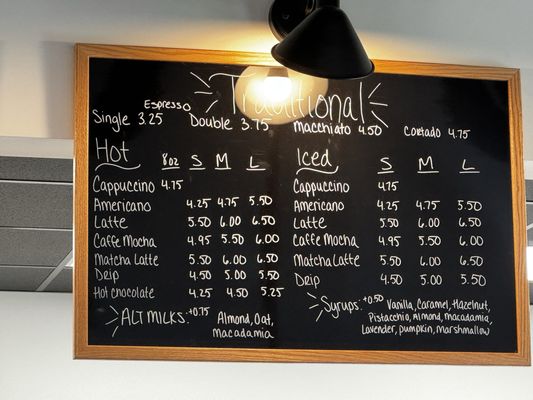 Traditional
Espresso
Single 3.25 Double 3.75 Macchiato 4.50 Cortado 4.75
Hot 8oz S M L
Cappuccino 4.75
Americano 4.25 4.75 5.50
Latte 5.50 6.00 6.50
Caffe Mocha 4.95 5.50 6.00
Matcha Latte 5.50 6.00 6.50
Drip 4.50 5.00 5.50
Hot chocolate 4.25 4.50 5.25
ALT MILKS: +0.75 Almond, Oat,
Macadamia
Iced S M L
Cappuccino 4.75
Americano 4.25 4.75 5.50
Latte 5.50 6.00 6.50
Caffe Mocha 4.95 5.50 6.00
Matcha Latte 5.50 6.00 6.50
Drip 4.50 5.00 5.50
Syrups: +0.50 Vanilla, Caramel, Hazelnut,
Pistacchio, Almond, macadamia,
Lavender, pumpkin, marshmallow